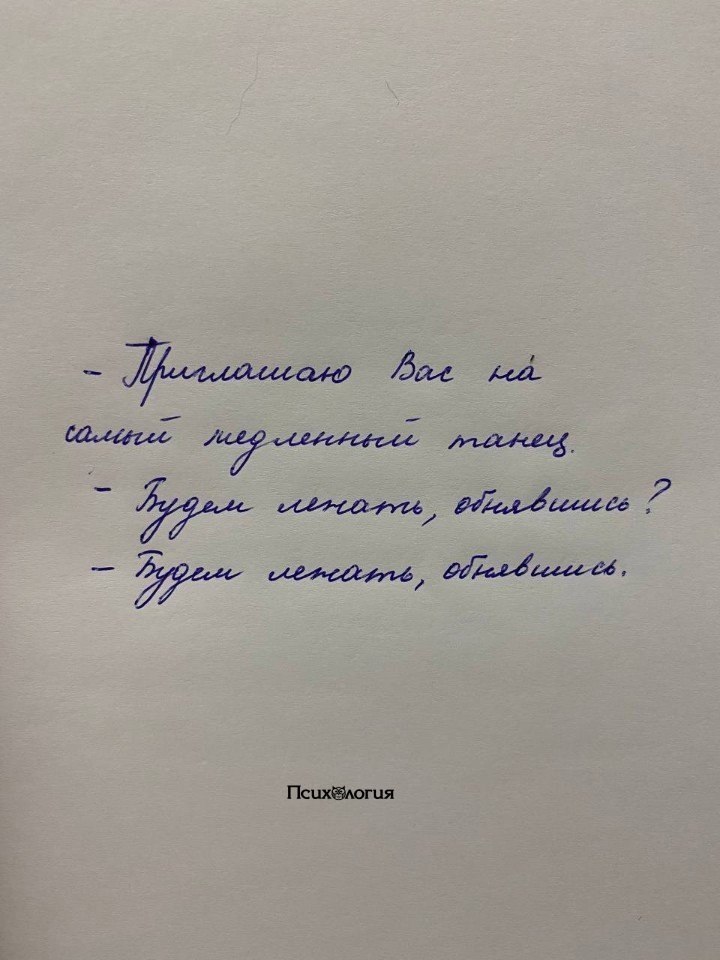 - Приглашаю Вас на
самый медленный танец.
- Будем лежать, обнявшись?
- Будем лежать, обнявшись.
Психология